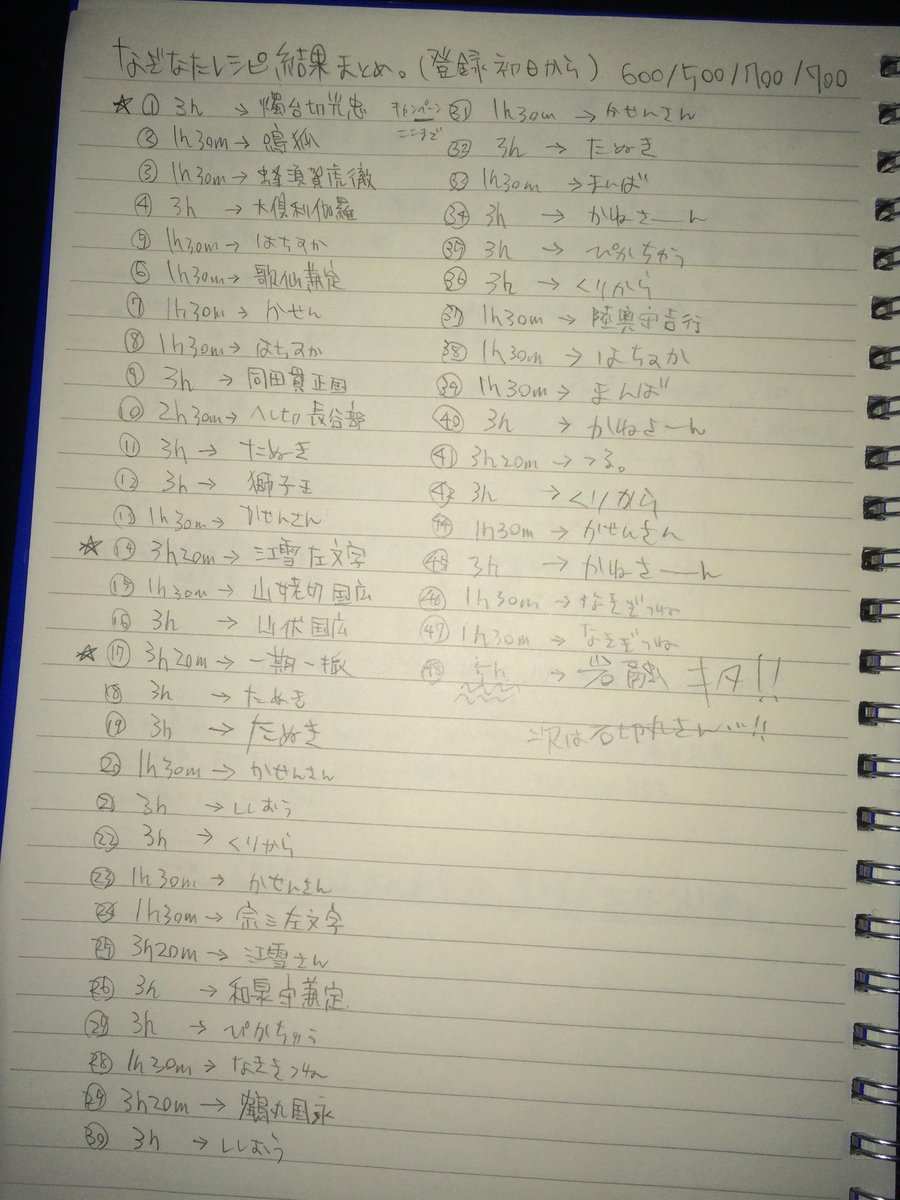 なぎなたレシピ結果まとめ。(登録初日から) 600/500/700/700
☆ ① 3h → 燭台切光忠 キャンペーンここまで
② 1h30m → 鳴狐
③ 1h30m → 蜂須賀虎徹
④ 3h → 大倶利伽羅
⑤ 1h30m → はちすか
⑥ 1h30m → 歌仙兼定
⑦ 1h30m → かせん
⑧ 1h30m → はちすか
⑨ 3h → 同田貫正国
⑩ 2h30m → へし切長谷部
⑪ 3h → たぬき
⑫ 3h → 獅子王
⑬ 1h30m → かせんさん
☆ ⑭ 3h20m → 江雪左文字
⑮ 1h30m → 山姥切国広
⑯ 3h → 山伏国広
☆ ⑰ 3h20m → 一期一振
⑱ 3h → たぬき
⑲ 3h → たぬき
⑳ 1h30m → かせんさん
㉑ 3h → ししおう
㉒ 3h → くりから
㉓ 1h30m → かせんさん
㉔ 1h30m → 宗三左文字
㉕ 3h20m → 江雪さん
㉖ 3h → 和泉守兼定
㉗ 3h → ぴかちゅう
㉘ 1h30m → なききつね
㉙ 3h20m → 鶴丸国永
㉚ 3h → ししおう
㉛ 1h30m → かせんさん
㉜ 3h → たぬき
㉝ 1h30m → まんば
㉞ 3h → かねさーーん
㉟ 3h → ぴかちゅう
㊱ 3h → くりから
㊲ 1h30m → 陸奥守吉行
㊳ 1h30m → はちすか
㊴ 1h30m → まんば
㊵ 3h → かねさーん
㊶ 3h20m → つる。
3h → くりから
㊹ 1h30m → かせんさん
㊺ 3h → かねさーーん
㊻ 1h30m → なきぎつね
㊼ 1h30m → なきぎつね
㊽ 5h → 岩融 キタ!!
次は石切丸さん…!!